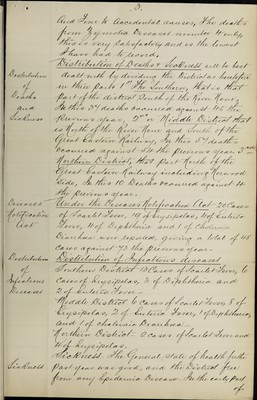 3.
And Four to Accidental causes, The deaths
from Zymotic Diseases number 4 only
this is very satisfactory and is the lowest
I have had to record.
Distribution of Deaths & Sickness will be best
Distribution
of
Deaths
and
Sickness
dealt with by dividing the District as heretofore
in three parts 1st The Southern, that is that
part of the district South of the River Rone,
In this 37 deaths occurred against 45 the
previous year, 2nd Middle District that
is North of the River Rone and South of the
Great Eastern Railway, In this 37 deaths
occurred against 44 the previous year 3rd
Northern District, that part North of the
Great Eastern Railway including Norwood
side, In this 10 Deaths occurred against 4
the previous year.
Diseases
Notification
Act
Under the Diseases Notification Act 20 Cases
of Scarlet Fever, 19 of Erysipelas, 4 of Enteric
Fever, 4 of Diphtheria and 1 of Cholera
Diarrhoea were reported, giving a total of 48
cases against 73 the previous year.
Distribution
of
Infectious
Diseases
Distribution of Infectious diseases
Southern District 12 Cases of Scarlet Fever, 6
cases of Erysipelas, 3 of Diphtheria and
2 of Enteric Fever.
Middle District 6 cases of Scarlet Fever 8 of
Erysipelas, 2 of Enteric Fever, 1 of Diphtheria,
and 1 of cholera Diarrhoea.
Northern District 2 cases of Scarlet Fever and
4 of Erysipelas.
Sickness
Sickness The General state of health for the
past year was good, and the District free
from any Epidemic Disease. In the early part
of